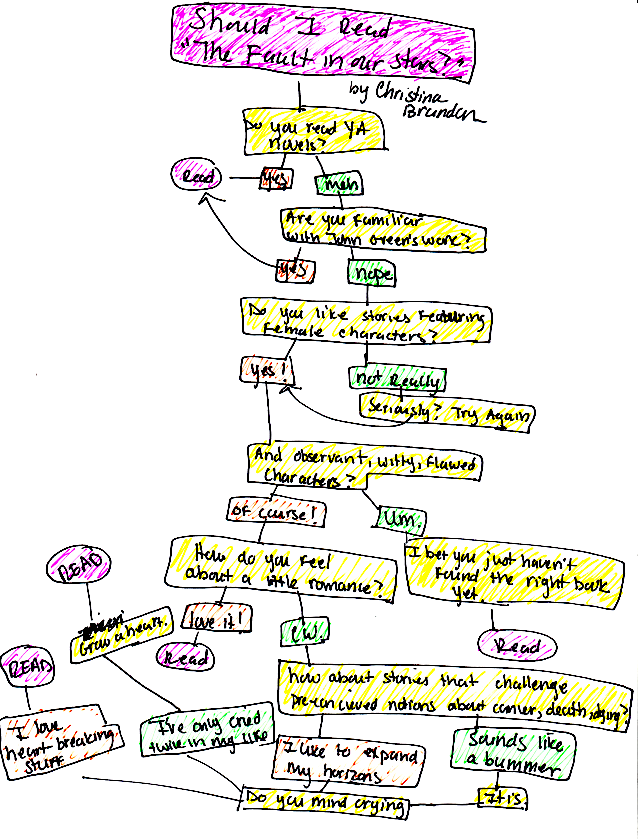 Should I Read
"The Fault in our stars?"
by Christina
Brandon
Do you read YA
novels?
Read
yes
meh
Are you Familiar
with John Green's work?
yes
nope
Do you like stories Featuring
Female characters?
yes!
not Really
Seriously? Try Again
And observant, witty, Flawed
Characters?
of course!
Um.
How do you Feel
about a little romance?
I bet you just haven't
Found the right book
yet.
READ
Grow a heart.
love it!
ew.
Read
Read
READ
how about stories that challenge
Pre-concieved notions about cancer, death, dying?
I love
heart breaking
stuff
I've only cried
twice in my life
I like to expand
My horizons
Sounds like
a bummer
Do you mind crying
It is